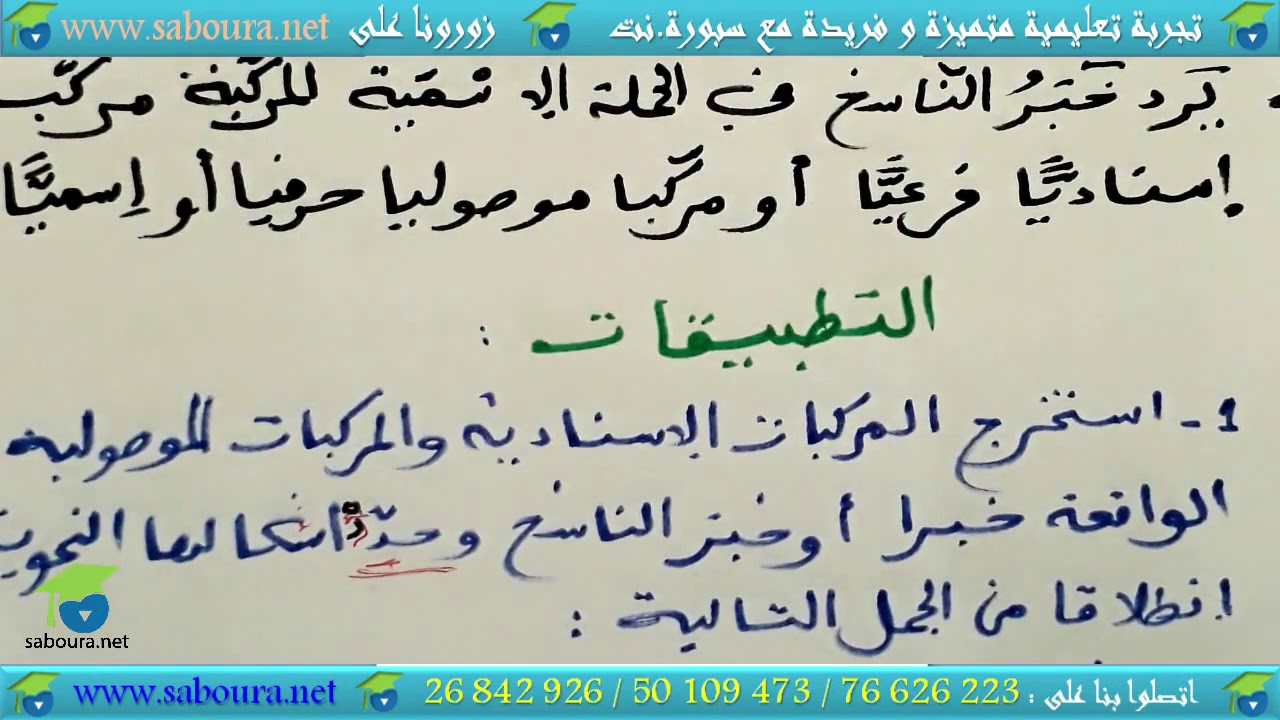 تجربة تعليمية متميزة و فريدة مع سبورة.نت زورونا على www.saboura.net
يَرد خَبَرُ النّاسخ في الجملة الاسْمَية المركّبة مركّب
إسناديًّا فرعيًّا أو مركّبا موصوليا حرفيا أو اِسميًّا
التطبيقات :
1- استخرج المركبات الإسنادية والمركبات الموصولية
الواقعة خبرا أو خبر الناسخ وحدّد اشكالها النحوية
انطلاقا من الجمل التالية :
saboura.net
اتصلوا بنا على : 26 842 926 / 50 109 473 / 76 626 223 www.saboura.net